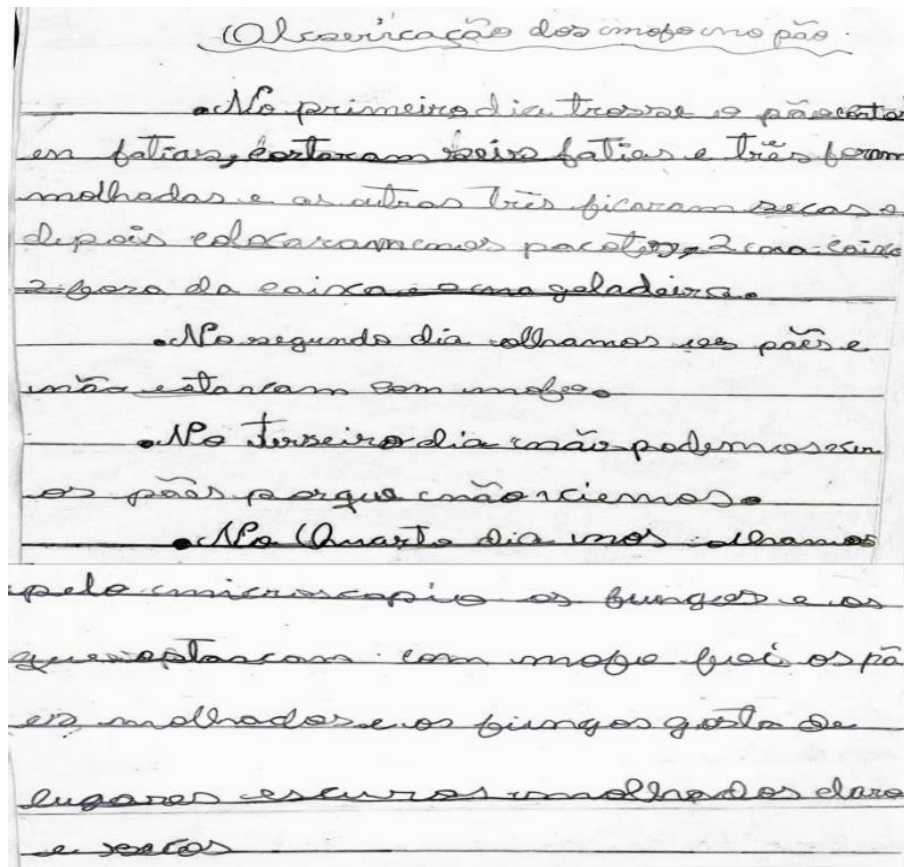 Observação dos mofo no pão.
• No primeiro dia trosse o pão corta
en fatias, cortaram seis fatias e três foram
molhadas e as outras três ficaram secas e
depois colocaram nos pacotes, 2 na caixa
2 fora da caixa e na geladeira.
• No segundo dia olhamos os pães e
não estavam com mofo.
• No terseiro dia não podemos ver
os pães porque não viemos.
• No Quarto dia nos olhamos
pelo microscopio os fungos e os
que estavam com mofo foi os pã
es molhados e os fungos gosta de
lugares escuros molhados claro
e secos